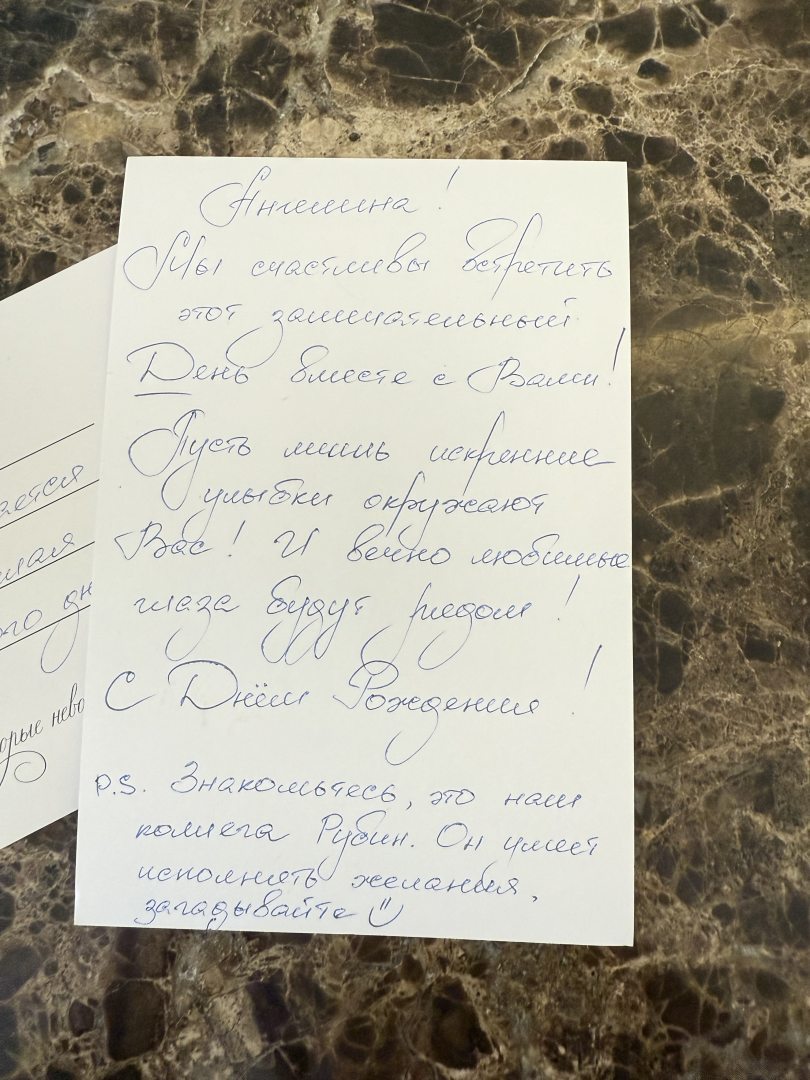 Ангелина!
Мы счастливы встретить
этот замечательный
День вместе с Вами!
Пусть лишь искренние
улыбки окружают
Вас! И вечно любимые
глаза будут рядом!
С Днём Рождения!
P.S. Знакомьтесь, это наш
коллега Рубин. Он умеет
исполнять желания,
загадывайте
ается
лая
ого дн
орые нево